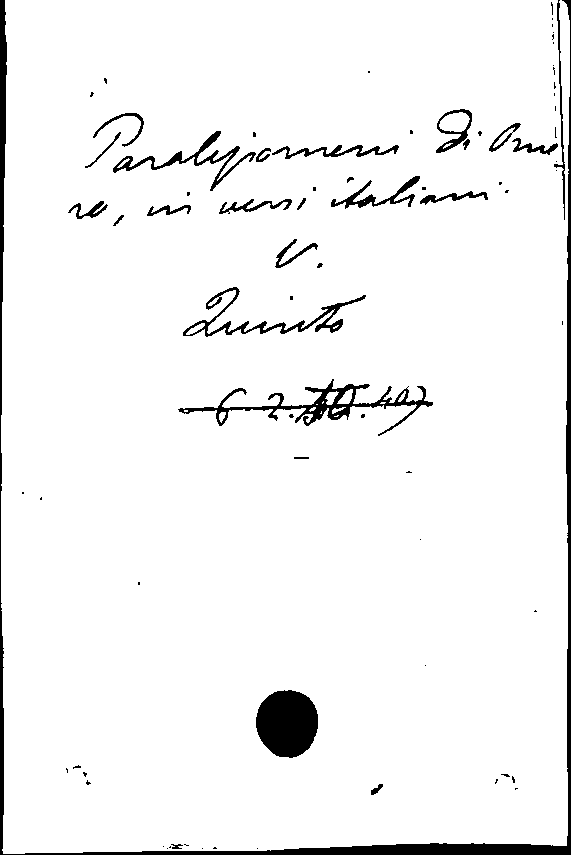 Paralipomeni di Ome
ro, in versi italiani.
V.
Quinto
6. 2.